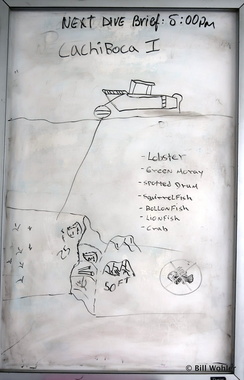 NEXT DIVE Brief: 5:00pm
Cachiboca I
- Lobster
- Green Moray
- spotted Drum
- squirrelfish
- Balloonfish
- Lionfish
- Crab
SOFT
© Bill Wohler